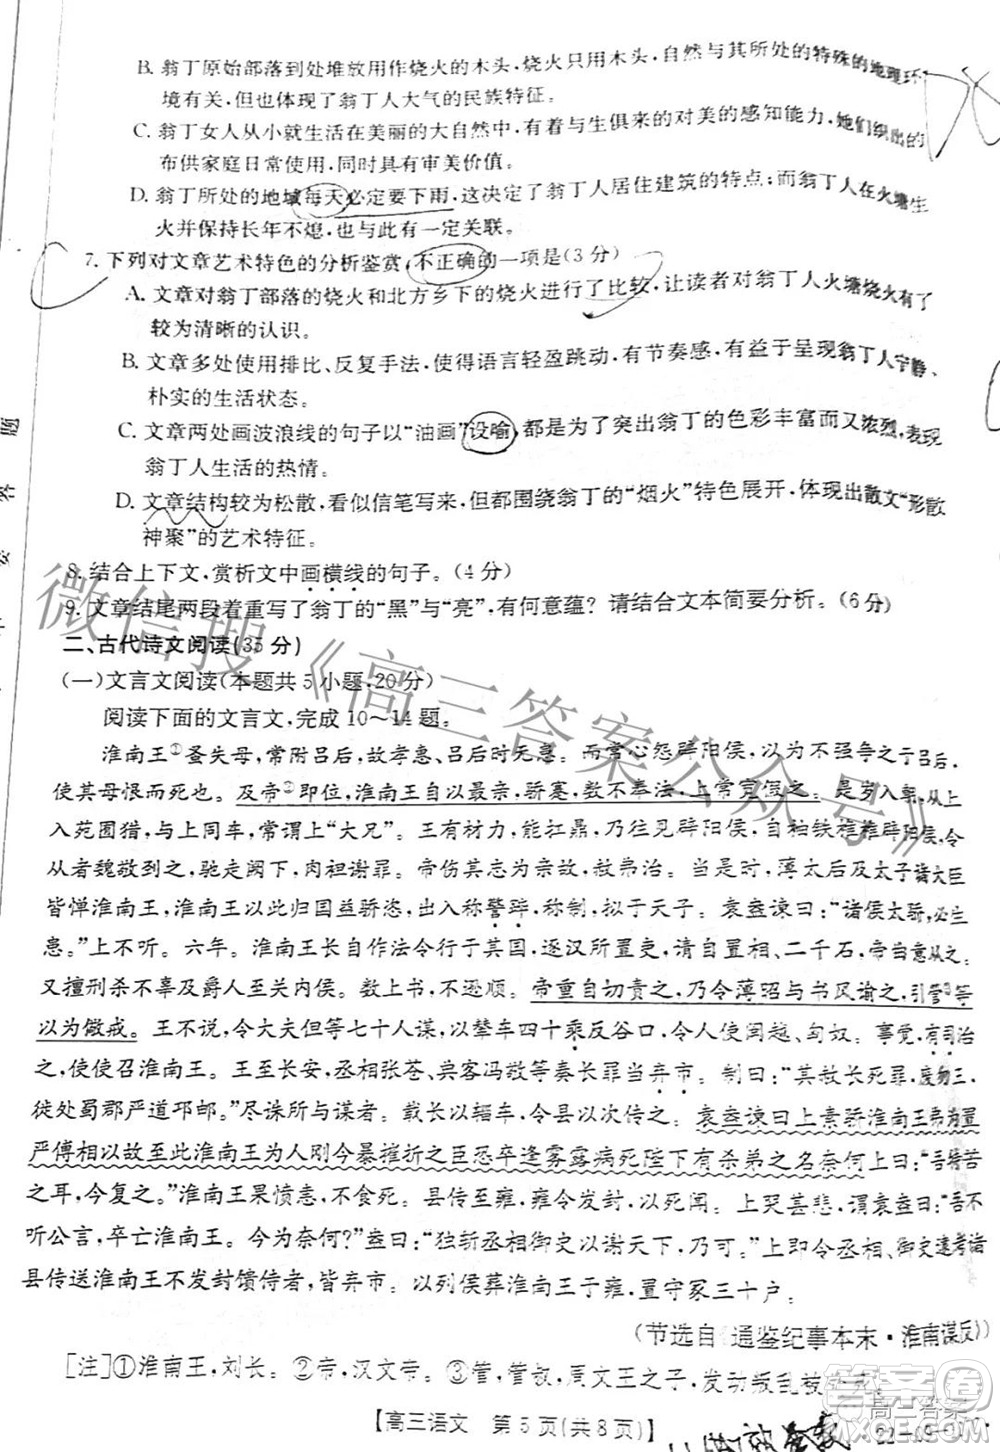 B. 翁丁原始部落到处堆放用作烧火的木头,烧火只用木头,自然与其所处的特殊的地理环
境有关,但也体现了翁丁人大气的民族特征。
C. 翁丁女人从小就生活在美丽的大自然中,有着与生俱来的对美的感知能力,她们织出的
布供家庭日常使用,同时具有审美价值。
D. 翁丁所处的地域每天必定要下雨,这决定了翁丁人居住建筑的特点;而翁丁人在火塘生
火并保持长年不熄,也有一定关联。
7. 下列对文章艺术特色的分析鉴赏,不正确的一项是(3分)
A. 文章对翁丁部落的烧火和北方乡下的烧火进行了比较,让读者对翁丁人火塘烧火有了
较为清晰的认识。
B. 文章多处使用排比、反复手法,使得语言轻盈跳动,有节奏感,有益于呈现翁丁人宁静、
朴实的生活状态。
C. 文章两处画波浪线的句子以“油画”设喻,都是为了突出翁丁的色彩丰富而又浓烈,表现
翁丁人生活的热情。
D. 文章结构较为松散,看似信笔写来,但都围绕翁丁的“烟火”特色展开,体现出散文“形散
神聚”的艺术特征。
8. 结合上下文,赏析文中画横线的句子。(4分)
9. 文章结尾两段着重写了翁丁的“黑”与“亮”,有何意蕴?请结合文本简要分析。(6分)
二、古代诗文阅读(35分)
(一)文言文阅读(本题共5小题,20分)
阅读下面的文言文,完成10~14题。
淮南王①蚤失母,常附吕后,故孝惠、吕后时无患。而常心怨辟阳侯,以为不强争之于吕后,
使其母恨而死也。及帝②即位,淮南王自以最亲,骄蹇,数不奉法,上常宽假之。是岁入朝,从上
入苑囿猎,与上同车,常谓上“大兄”。王有材力,能扛鼎,乃往见辟阳侯,自袖铁椎椎辟阳侯,令
从者魏敬刭之,驰走阙下,肉袒谢罪。帝伤其志为亲,故赦弗治。当是时,薄太后及太子诸大臣
皆惮淮南王,淮南王以此归国益骄恣,出入称警跸,称制,拟于天子。袁盎谏曰:“诸侯太骄,必生
患。”上不听。六年。淮南王长自作法令行于其国,逐汉所置吏,请自置相、二千石,帝曲意从之。
又擅刑杀不辜及爵人至关内侯。数上书,不逊顺。帝重自切责之,乃令薄昭与书风谕之,引管③等
以为儆戒。王不说,令大夫但等七十人谋,以辇车四十乘反谷口,令人使闽越、匈奴。事觉,有司治
之,使使召淮南王。王至长安,丞相张苍、典客冯敬等奏长罪当弃市。制曰:“其赦长死罪,废勿王,
徙处蜀郡严道邛邮。”尽诛所与谋者。载长以辎车,令县以次传之。袁盎谏曰上素骄淮南王弗为置
严傅相以故至此淮南王为人刚今暴摧折之臣恐卒逢雾露病死陛下有杀弟之名奈何上曰:“吾特苦
之耳,今复之。”淮南王果愤恚,不食死。县传至雍,雍令发封,以死闻。上哭甚悲,谓袁盎曰:“吾不
听公言,卒亡淮南王。今为奈何?”盎曰:“独斩丞相御史以谢天下,乃可。”上即令丞相、御史逮考诸
县传送淮南王不发封馈侍者,皆弃市。以列侯葬淮南王于雍,置守冢三十户。
(节选自《通鉴纪事本末·淮南谋反》)
[注]①淮南王,刘长。②帝,汉文帝。③管,管叔,周文王之子,发动叛乱被诛死。
【高三语文 第5页(共8页)】
微信搜《高三答案公众号》
答案圈
高三答案